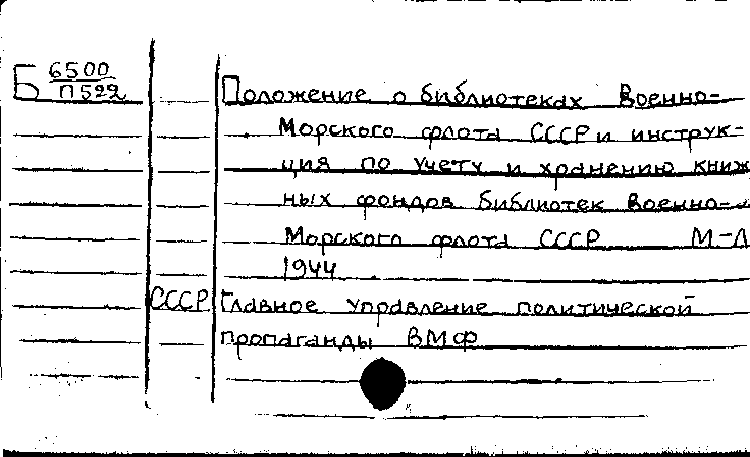 Б 6500
П522
Положение о библиотеках Военно-
Морского флота СССР и инструк-
ция по учету и хранению книж
ных фондов библиотек Военно-
Морского флота СССР М-Л
1944
СССР Главное управление политической
пропаганды ВМФ